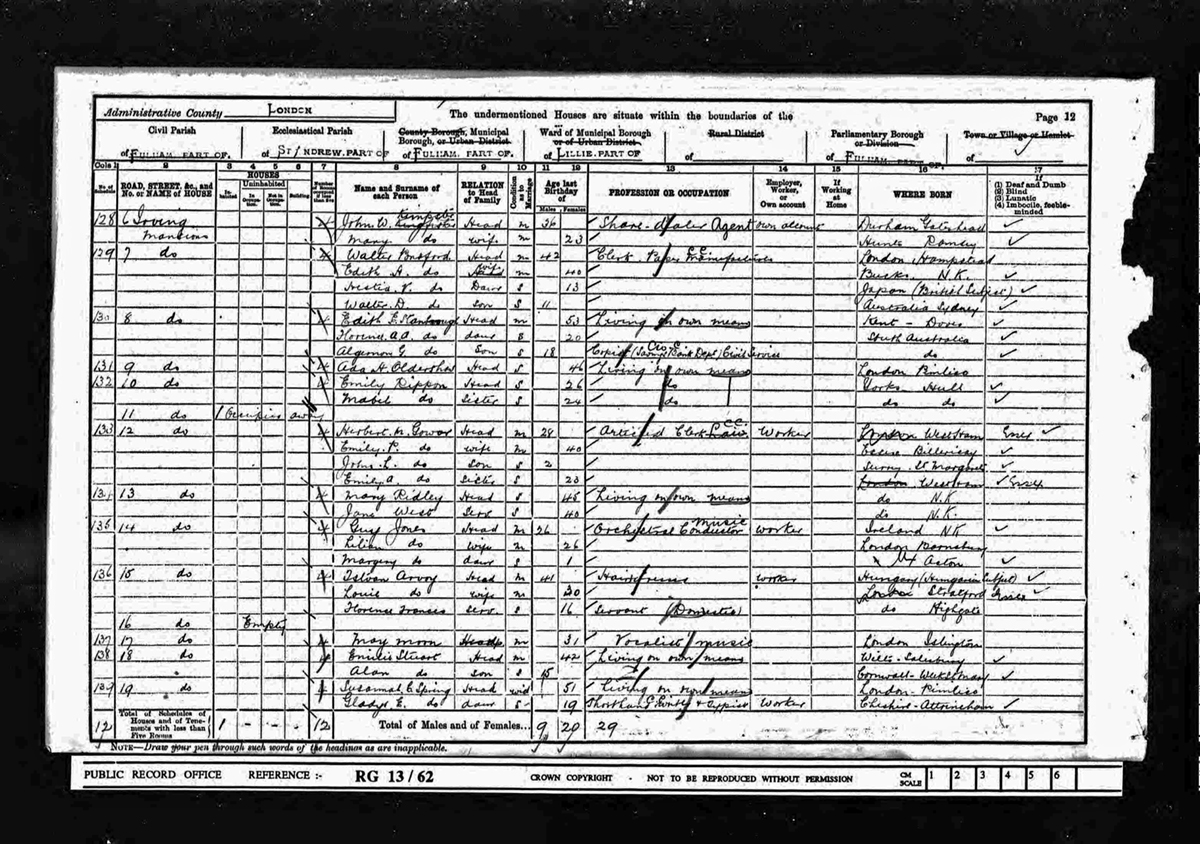 Administrative County LONDON
The undermentioned Houses are situate within the boundaries of the
Page 12
Civil Parish
of FULHAM. PART OF
Ecclesiastical Parish
of ST/NDREW. PART OF
County Borough, Municipal Borough, or Urban District
of FULHAM. PART OF.
Ward of Municipal Borough or of Urban District
of LILLIE. PART OF
Rural District
of
Parliamentary Borough or Division
of FULHAM PART OF.
Town or Village or Hamlet
of
Cols 1 2 3 4 5 6 7 8 9 10 11 12 13 14 15 16 17
ROAD, STREET, &c., and No. or NAME of HOUSE
HOUSES
Uninhabited
Building
Name and Surname of each Person
RELATION to Head of Family
Condition as to Marriage
Age last Birthday of
Males Females
PROFESSION OR OCCUPATION
Employer, Worker, or Own account
If Working at Home
WHERE BORN
If
(1) Deaf and Dumb
(2) Blind
(3) Lunatic
(4) Imbecile, feeble-minded
128 6 Irving Mansions John W. Head m 36 Share-dealer Agent own account Durham Gateshead
Mary do wife m 23 Hunts Ramsey
129 7 do Walter Head m 42 Clerk London Hampstead
Edith A. do wife m 40 Bucks. N.K.
V. do Daur S 13 Japan (British Subject)
Walter D. do Son S 11 Australia Sydney
130 8 do Edith E. Head m 53 Living on own means Kent - Dover
Florence A.A. do daur S 20 South Australia
Algernon G. do Son S 18 (Savings Bank Dept) Civil Service do
131 9 do Ada H. Head S 46 Living on own means London Pimlico
132 10 do Emily Rippon Head S 26 do Yorks Hull
Mabel do Sister S 24 do do do
11 do 1 Occupier away
133 12 do Herbert Gowar Head m 28 Articled Clerk Law Worker London West Ham Essex
Emily P. do wife m 40 Essex Billericay
John L. do Son S 2 Surrey St Margarets
Emily A. do Sister S 23 London West Ham Essex
134 13 do Mary Ridley Head S 45 Living on own means do N.K
Jane West Serv S 40 do N.K.
135 14 do Guy Jones Head m 26 Orchestral Conductor music worker Ireland NK
Lilian do wife m 26 London Barnsbury
Margery do daur S 1 Acton
136 15 do Head m 41 worker Hungary (Hungarian Subject)
Louie do wife m 30 London Stratford Essex
Florence Frances Serv S 16 Servant (Domestic) do Highgate
16 do Empty
137 17 do May Moon Head m 31 Vocalist music London Islington
138 18 do Stewart Head m 42 Living on own means Wilts-Salisbury
Alan do son S 15 Cornwall-Week St Mary
139 19 do Susannah E Spring Head wid 51 Living on own means London-Pimlico
Gladys E. do daur S 19 & Typist Worker Cheshire-Altrincham
12 Total of Schedules of Houses and of Tenements with less than Five Rooms 1 - - - 12 Total of Males and of Females... 9 20 29
NOTE—Draw your pen through such words of the headings as are inapplicable.
PUBLIC RECORD OFFICE REFERENCE :- RG 13/62 CROWN COPYRIGHT - NOT TO BE REPRODUCED WITHOUT PERMISSION CM SCALE 1 2 3 4 5 6